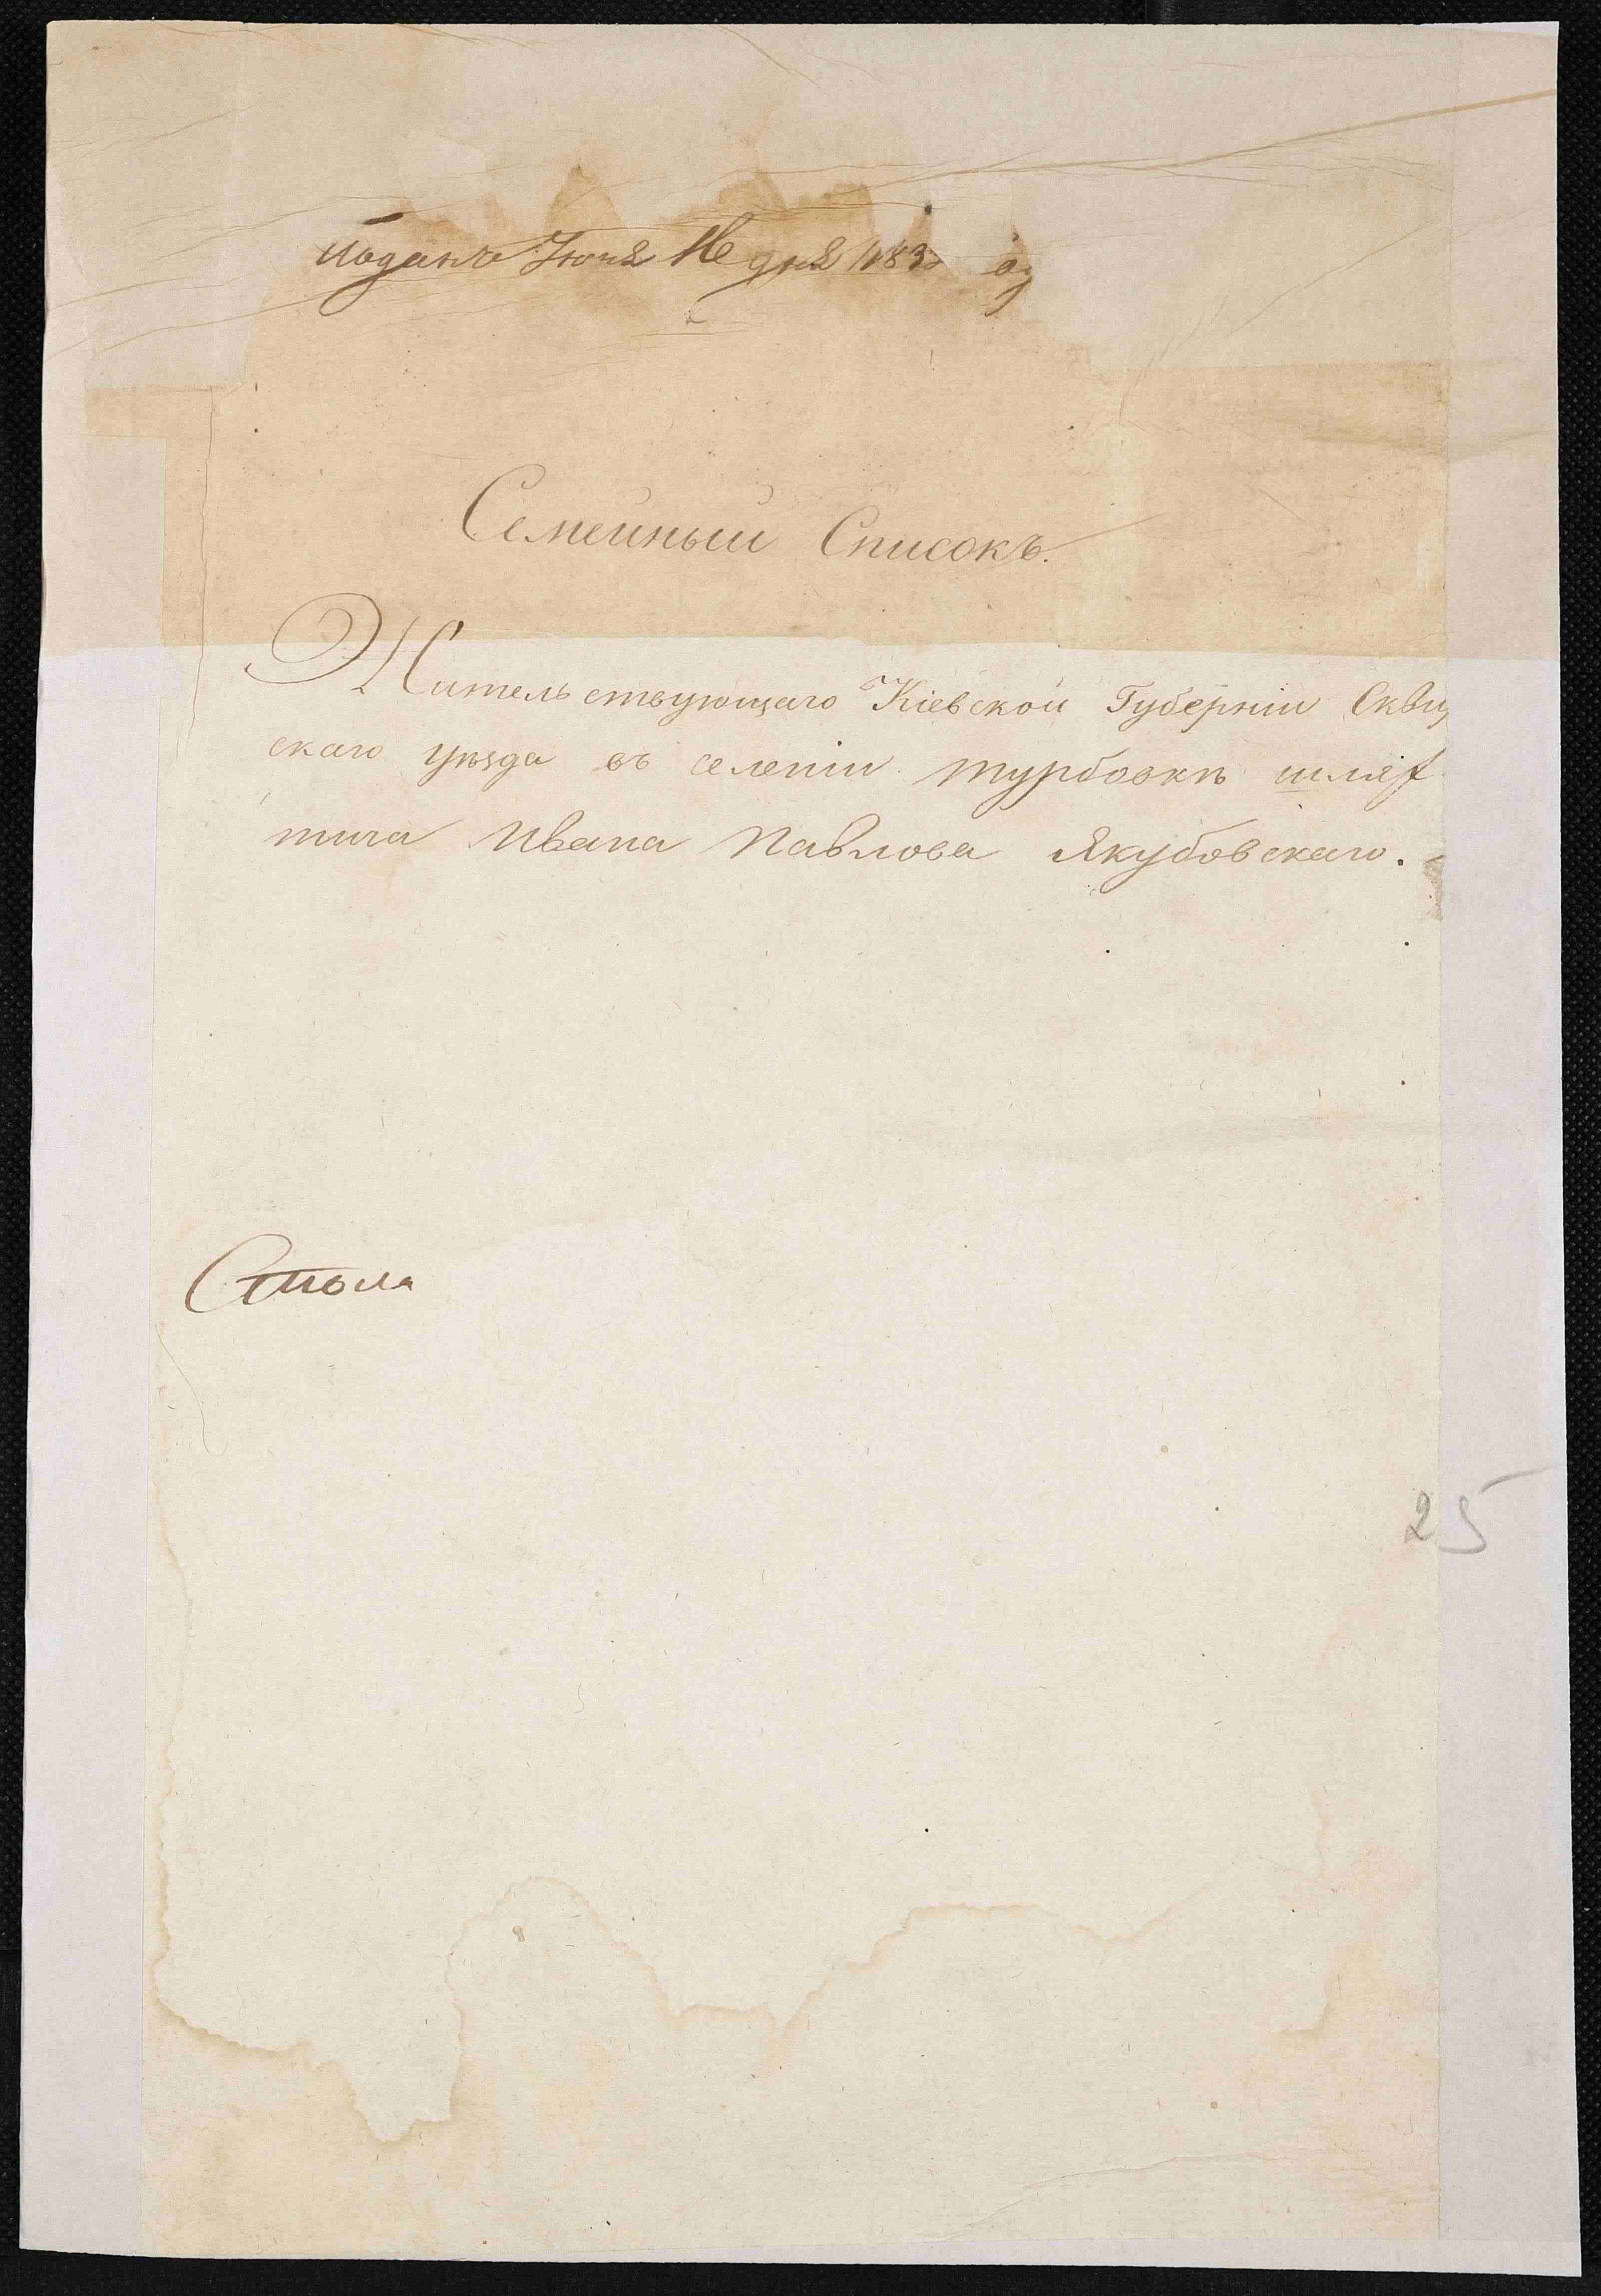 Поданъ Іюня 16 дня 183
Семейный Списокъ.
Жительствующаго Кіевской Губерніи Сквир
скаго уѣзда въ селеніи турбовкѣ шлях
тича Ивана Павлова Якубовскаго.
25